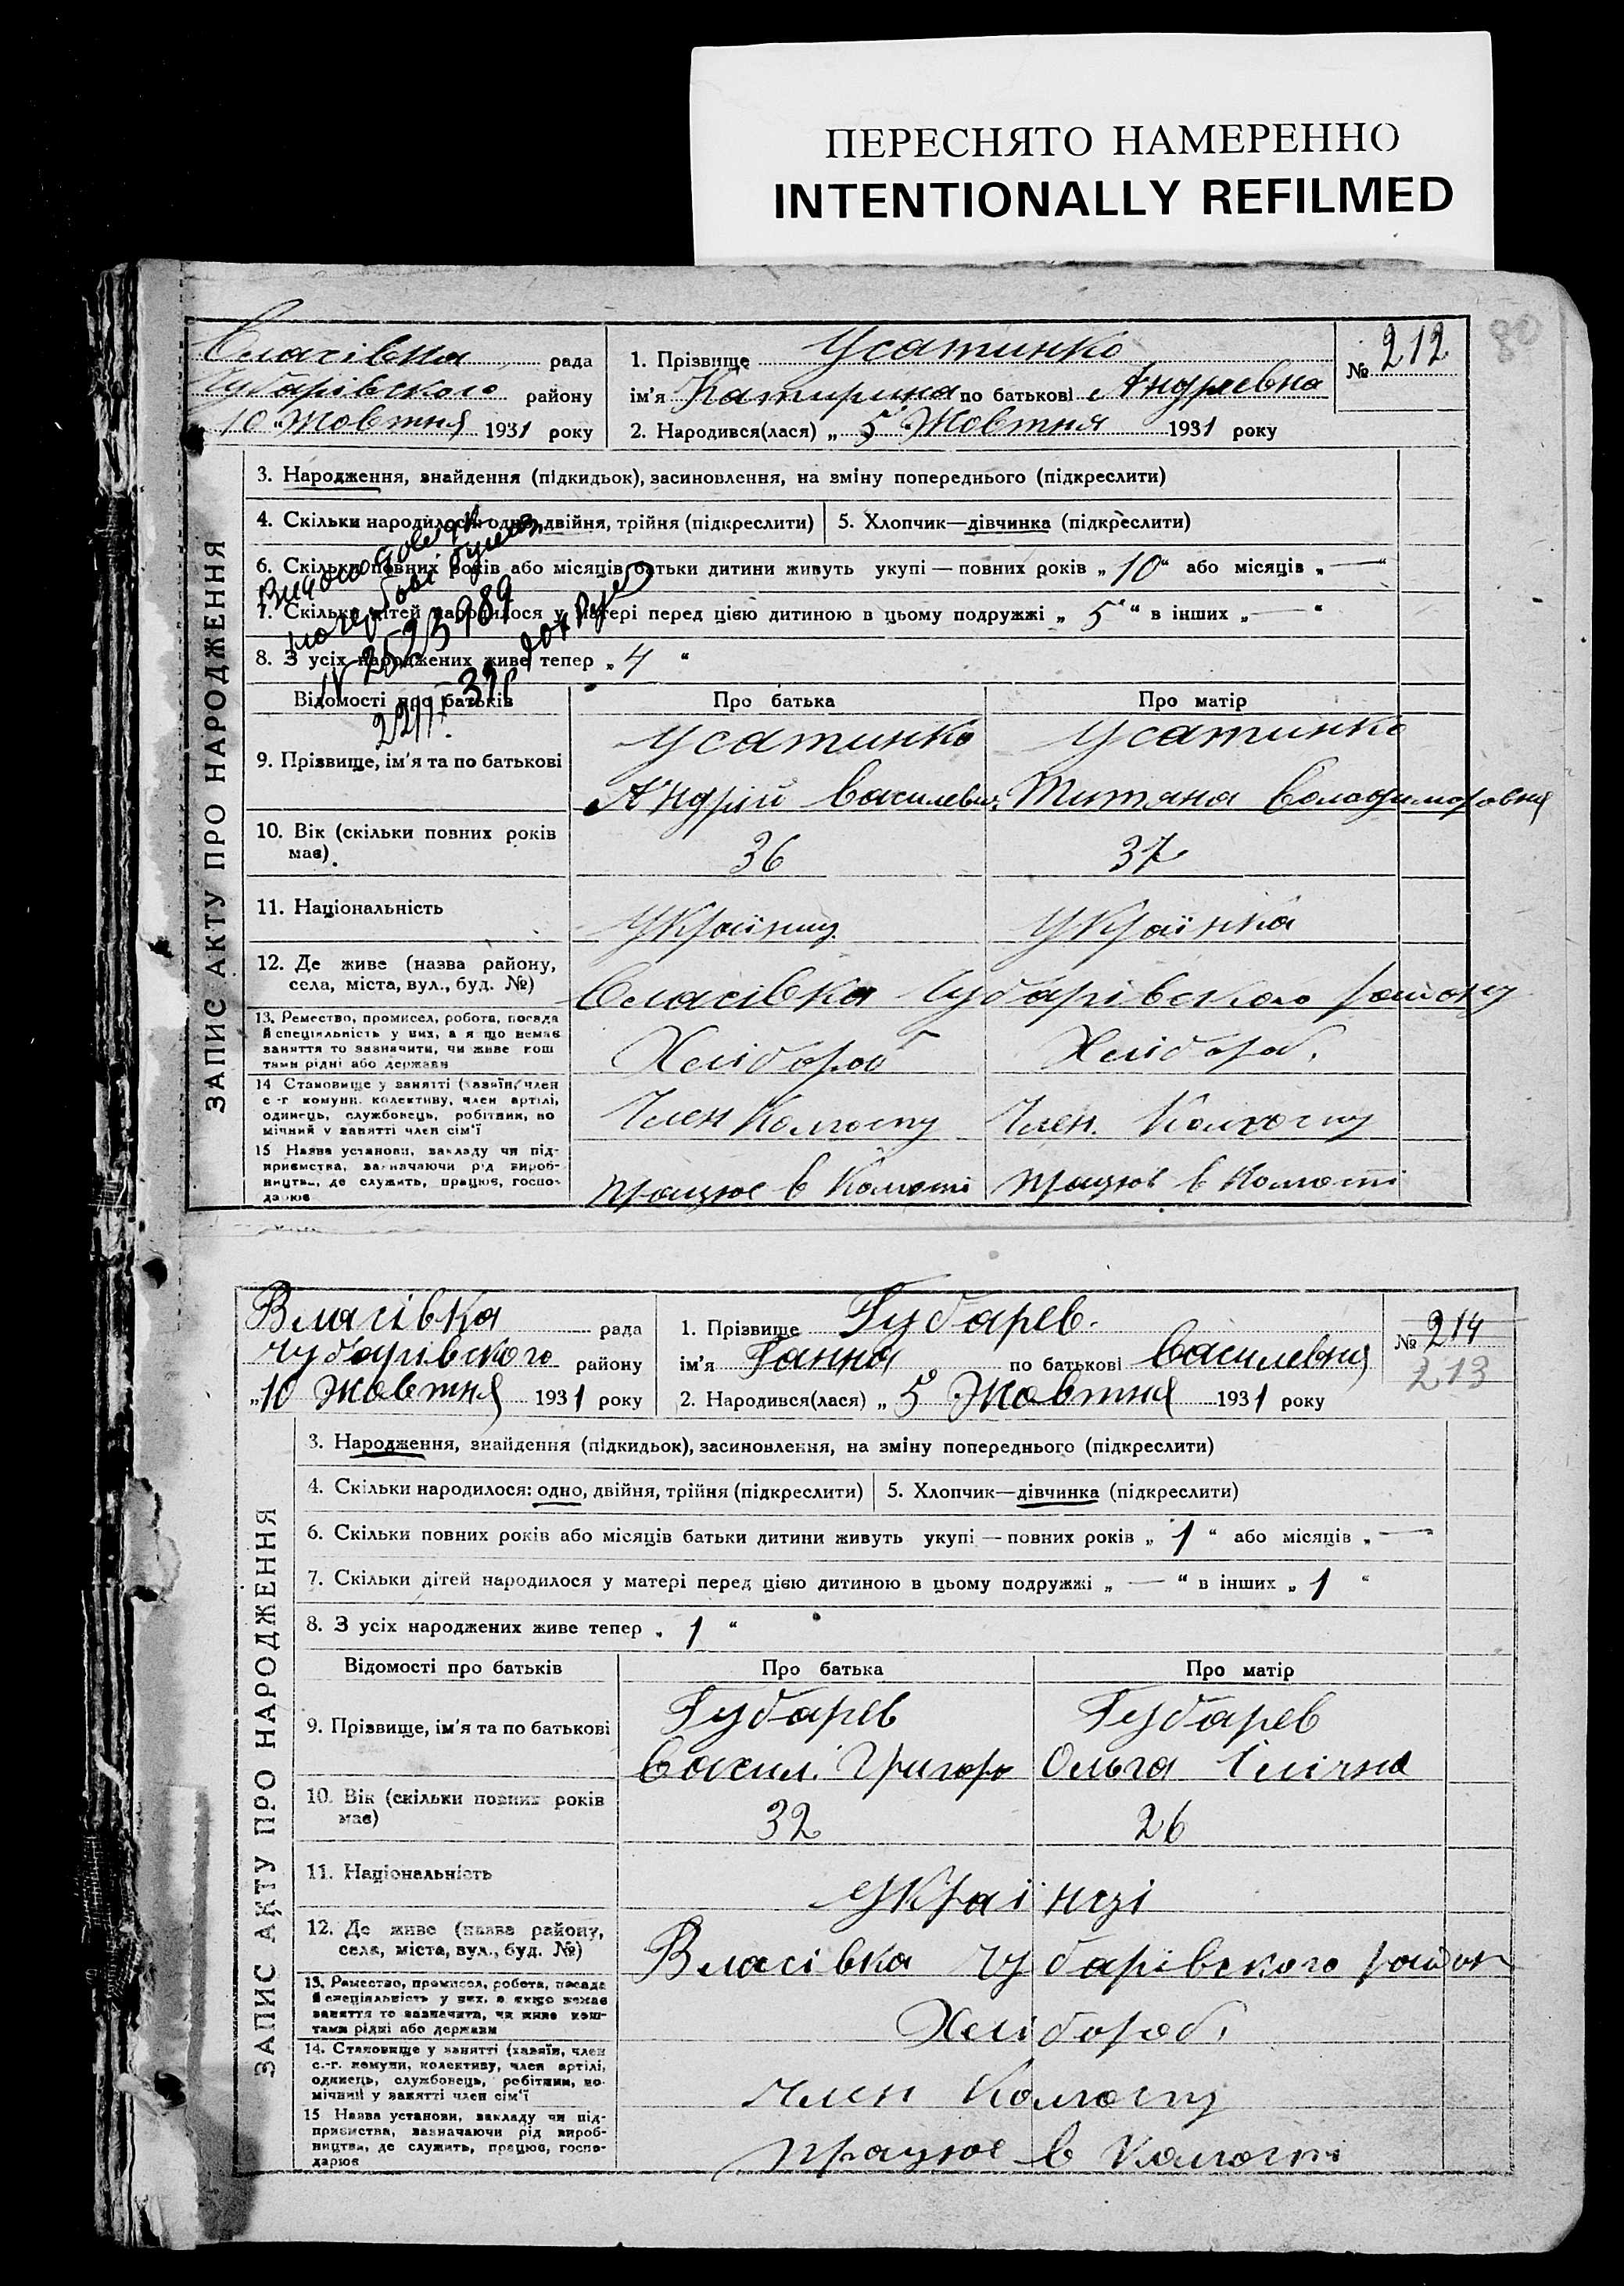 ПЕРЕСНЯТО НАМЕРЕННО
INTENTIONALLY REFILMED
80
Власівка рада
Чубарівского району
10 „Жовтня 1931 року
1. Прізвище Усатинко
ім'я Катирина по батькові Андреевна
2. Народився(лася) „ 5 " Жовтня 1931 року
№ 212
ЗАПИС АКТУ ПРО НАРОДЖЕННЯ
3. Народження, знайдення (підкидьок), засиновлення, на зміну попереднього (підкреслити)
4. Скільки народилося: одно, двійня, трійня (підкреслити)
5. Хлопчик—дівчинка (підкреслити)
6. Скільки повних років або місяців батьки дитини живуть укупі — повних років „ 10 “ або місяців „ — “
7. Скільки дітей народилося у матері перед цією дитиною в цьому подружжі „ 5 “ в інших „ — “
8. З усіх народжених живе тепер „ 4 “
Відомості про батьків Про батька Про матір
9. Прізвище, ім'я та по батькові
Усатинко Усатинко
Андрій Василевич Титяна Володимировна
10. Вік (скільки повних років має)
36 37
11. Національність
Українец Українка
12. Де живе (назва району, села, міста, вул., буд. №)
Власівка Чубарівского району
13. Ремество, промисел, робота, посада й спеціяльність у них, а я що немає заняття то зазначити, чи живе кош тами рідні або держави
Хлібороб Хлібороб.
14 Становище у занятті (хазяїн, член с -г комуни, колективу, член артілі, одинець, службовець, робітник, по мічний у занятті член сім'ї
Член Колгоспу Член Колгоспу
15 Назва установи, закладу чи під- приємства, зазначаючи рід вироб- ництва, де служить, працює, госпо- дарює
працює в Колгоспі працює в Колгоспі
Власівка рада
Чубарівского району
„10 Жовтня 1931 року
1. Прізвище Губарев.
ім'я Ганна по батькові Василевна
2. Народився(лася) „ 5 Жовтня 1931 року
№ 214
213
ЗАПИС АКТУ ПРО НАРОДЖЕННЯ
3. Народження, знайдення (підкидьок), засиновлення, на зміну попереднього (підкреслити)
4. Скільки народилося: одно, двійня, трійня (підкреслити)
5. Хлопчик—дівчинка (підкреслити)
6. Скільки повних років або місяців батьки дитини живуть укупі — повних років „ 1 “ або місяців „ —
7. Скільки дітей народилося у матері перед цією дитиною в цьому подружжі „ — “ в інших „ 1 “
8. З усіх народжених живе тепер „ 1 “
Відомості про батьків Про батька Про матір
9. Прізвище, ім'я та по батькові
Губарев Губарев
Васил. Григоро Ольга Ілічна
10. Вік (скільки повних років має)
32 26
11. Національність
Українці
12. Де живе (назва району, села, міста, вул., буд. №)
Власівка Чубарівского район
13. Ремество, промисел, робота, посада й спеціяльність у них, а якщо немає заняття то зазначити, чи живе кош- тами рідні або держави
Хлібороб.
14. Становище у занятті (хазяїн, член с.-г. комуни, колективу, член артілі, одинець, службовець, робітник, по- мічний у занятті член сім'ї
Член Колгоспу
15 Назва установи, закладу чи під- приємства, зазначаючи рід вироб- ництва, де служить, працює, госпо- дарює
працює в Колгоспі